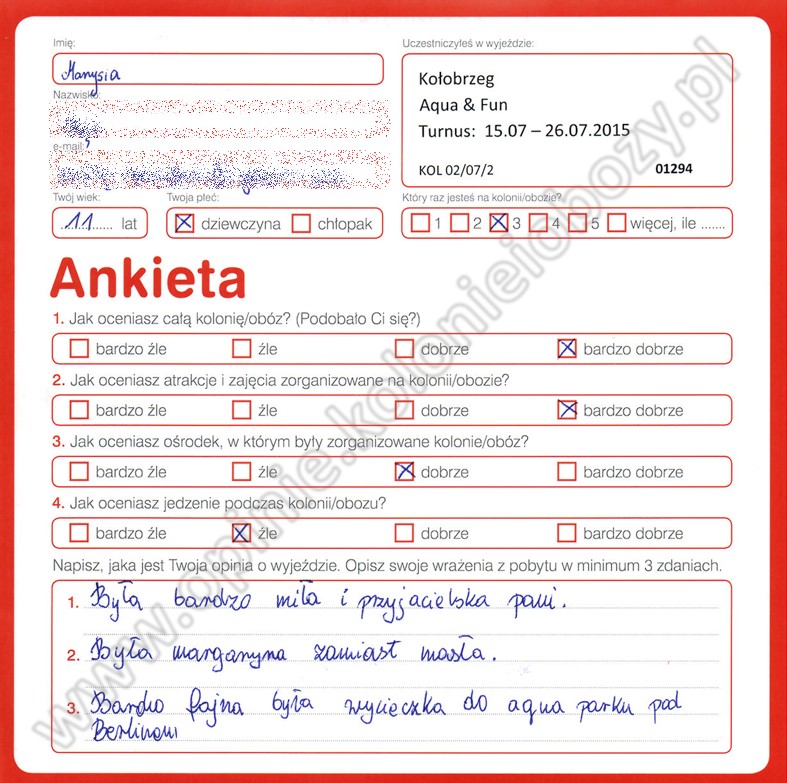 Imię:
Marysia
Nazwisko:
e-mail:
Twój wiek:
11 lat
Twoja płeć:
dziewczyna chłopak
Uczestniczyłeś w wyjeździe:
Kołobrzeg
Aqua & Fun
Turnus: 15.07 – 26.07.2015
KOL 02/07/2 01294
Który raz jesteś na kolonii/obozie?
1 2 3 4 5 więcej, ile .......
Ankieta
1. Jak oceniasz całą kolonię/obóz? (Podobało Ci się?)
bardzo źle źle dobrze bardzo dobrze
2. Jak oceniasz atrakcje i zajęcia zorganizowane na kolonii/obozie?
bardzo źle źle dobrze bardzo dobrze
3. Jak oceniasz ośrodek, w którym były zorganizowane kolonie/obóz?
bardzo źle źle dobrze bardzo dobrze
4. Jak oceniasz jedzenie podczas kolonii/obozu?
bardzo źle źle dobrze bardzo dobrze
Napisz, jaka jest Twoja opinia o wyjeździe. Opisz swoje wrażenia z pobytu w minimum 3 zdaniach.
1. Była bardzo miła i przyjacielska pani.
2. Była marganyna zamiast masła.
3. Bardzo fajna była wycieczka do aqua parku pod
Berlinem
www.opinie.kolonieiobozy.pl